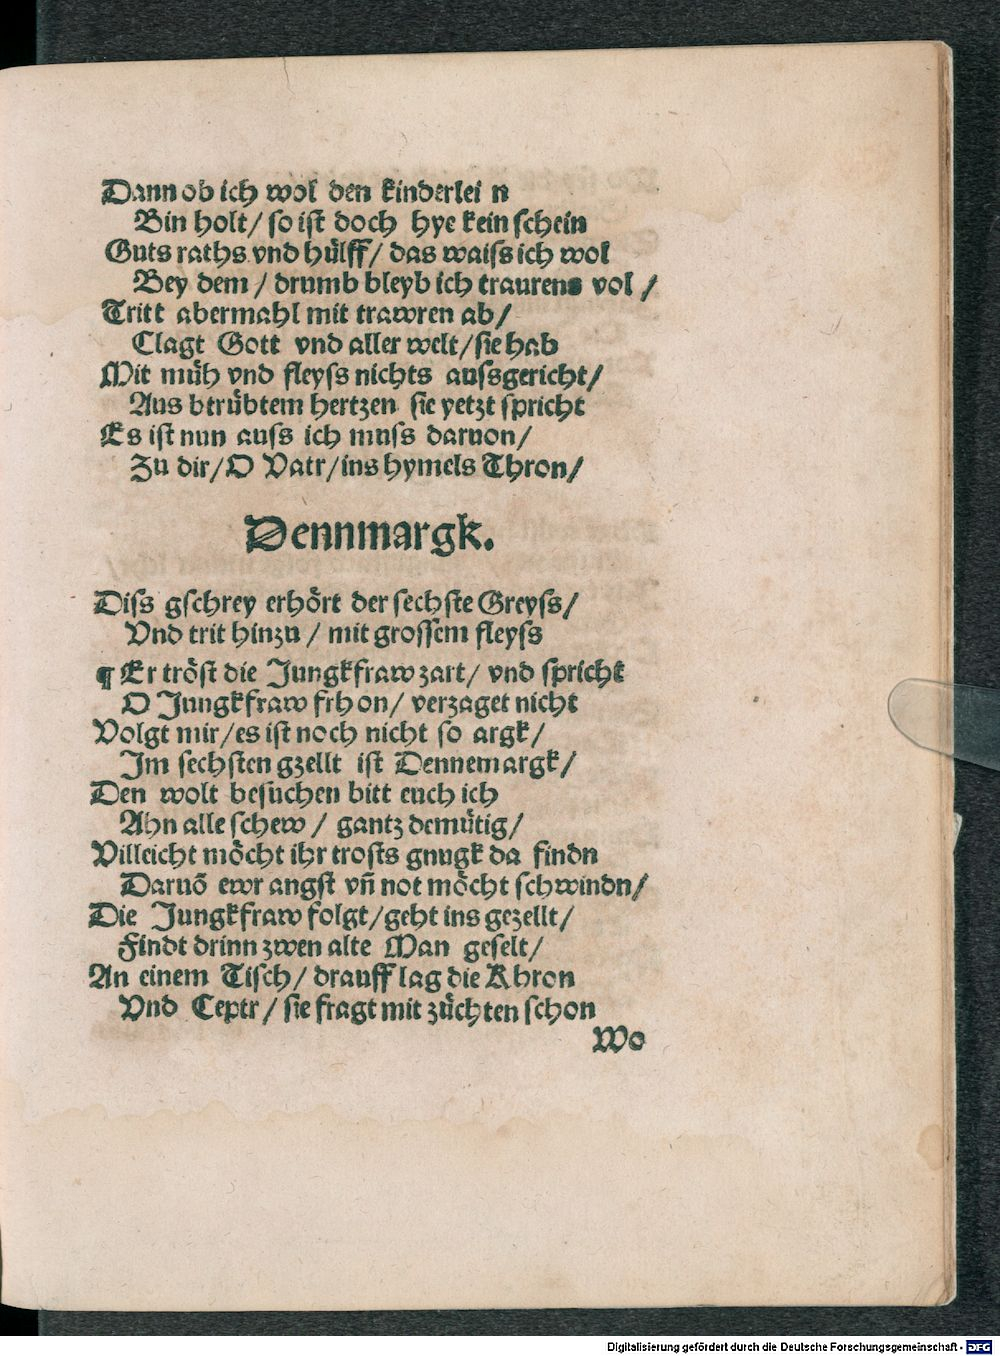 Dann ob ich wol den kinderlei n
Bin holt / so ist doch hye kein schein
Guts raths vnd hülff / das waiss ich wol
Bey dem / drumb bleyb ich traurens vol /
Tritt abermahl mit trawren ab /
Clagt Gott vnd aller welt / sie hab
Mit müh vnd fleyss nichts aussgericht /
Aus btrübtem hertzen sie yetzt spricht
Es ist nun auss ich muss daruon /
Zu dir / O Vatr / ins hymels Thron /
Dennmargk.
Diss gschrey erhört der sechste Greyss /
Vnd trit hinzu / mit grossem fleyss
¶ Er tröst die Jungkfraw zart / vnd spricht
O Jungkfraw frh on / verzaget nicht
Volgt mir / es ist noch nicht so argk /
Im sechsten gzellt ist Dennemargk /
Den wolt besuchen bitt euch ich
Ahn alle schew / gantz demütig /
Villeicht möcht ihr trosts gnugk da findn
Daruō ewr angst vn̄ not möcht schwindn /
Die Jungkfraw folgt / geht ins gezellt /
Findt drinn zwen alte Man geselt /
An einem Tisch / drauff lag die Khron
Vnd Ceptr / sie fragt mit züchten schon
Wo
Digitalisierung gefördert durch die Deutsche Forschungsgemeinschaft - DFG